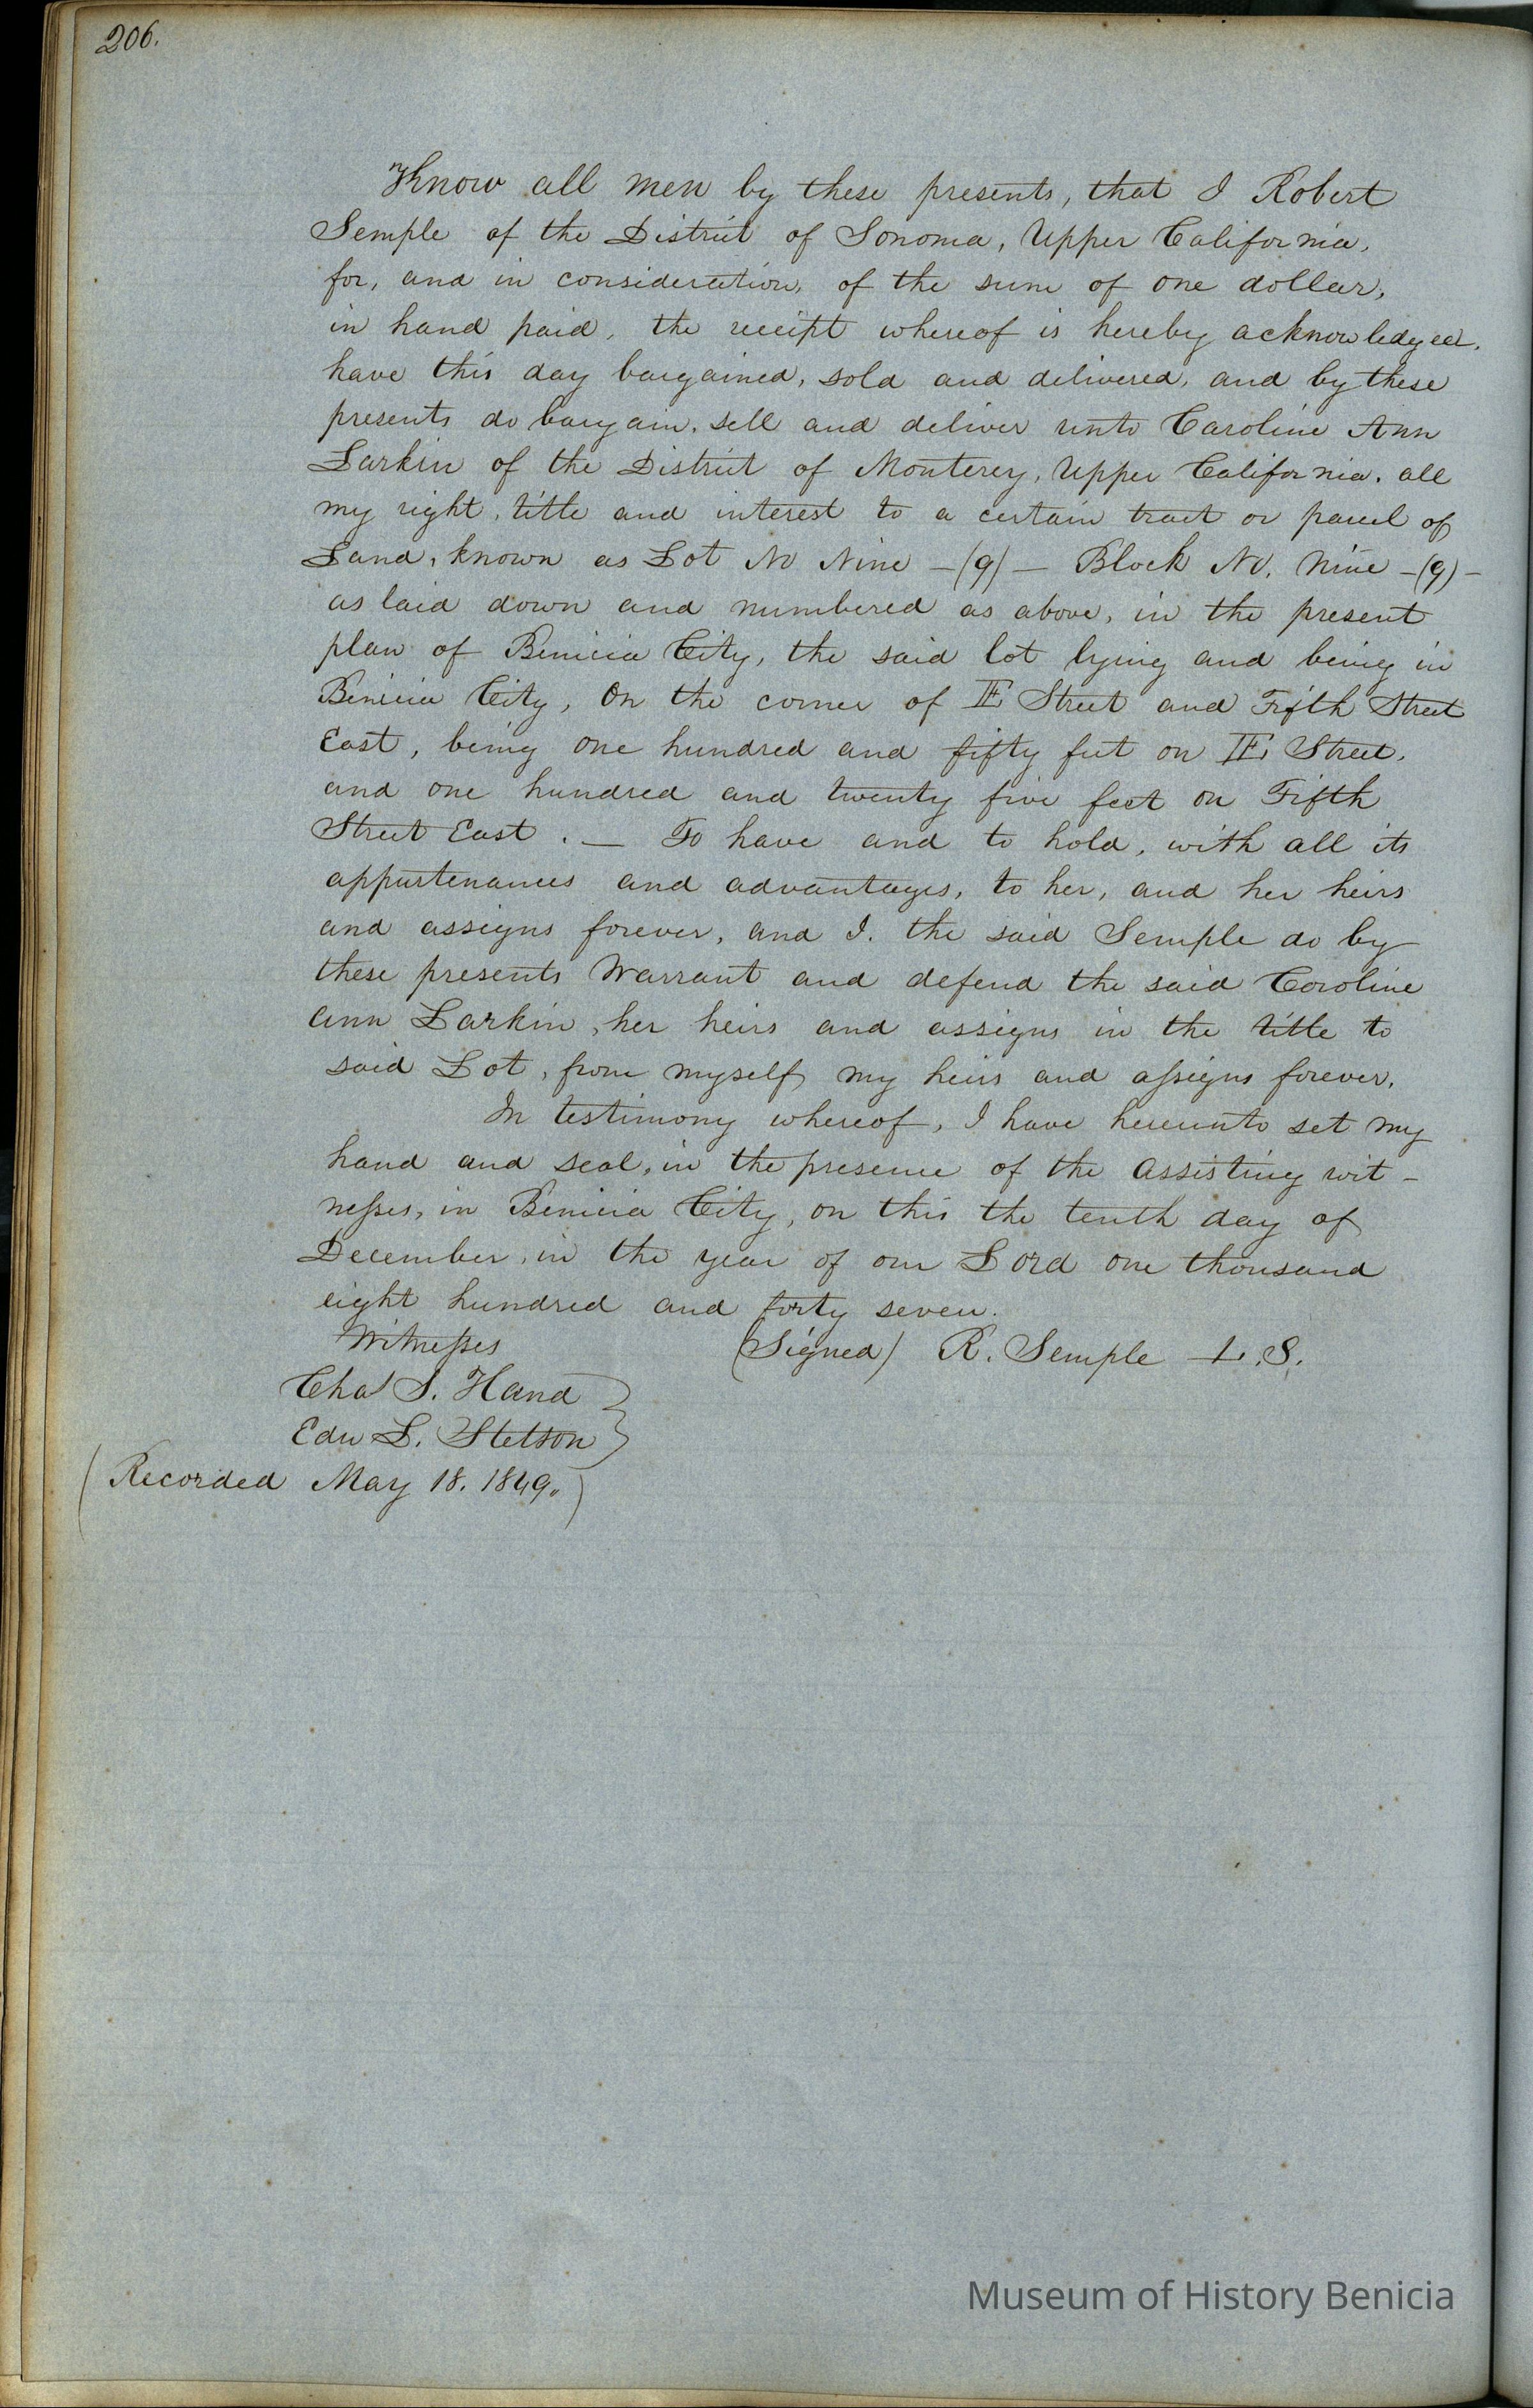 206.
Know all men by these presents, that I Robert
Semple of the District of Sonoma, Upper California,
for, and in consideration, of the sum of one dollar,
in hand paid, the receipt whereof is hereby acknowledged,
have this day bargained, sold and delivered, and by these
presents do bargain, sell and deliver unto Caroline Ann
Larkin of the District of Monterey, Upper California. all
my right, title and interest to a certain tract or parcel of
Land, known as Lot No Nine – (9) – Block No. Nine – (9) –
as laid down and numbered as above, in the present
plan of Benicia City, the said lot lying and being in
Benicia City, On the corner of E Street and Fifth Street
East, being one hundred and fifty feet on E Street,
and one hundred and twenty five feet on Fifth
Street East. — To have and to hold, with all its
appurtenances and advantages, to her, and her heirs
and assigns forever, and I. the said Semple do by
these presents Warrant and defend the said Caroline
Ann Larkin, her heirs and assigns in the title to
said Lot, from myself my heirs and assigns forever.
In testimony whereof, I have hereunto set my
hand and seal, in the presence of the Assisting wit-
nesses, in Benicia City, on this the tenth day of
December, in the year of our Lord one thousand
eight hundred and forty seven.
Witnesses (Signed) R. Semple L.S.
Chas S. Hand
Edw L. Stetson
(Recorded May 18. 1849.)
Museum of History Benicia